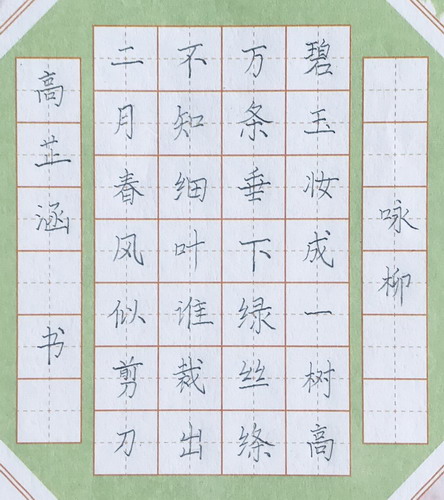 咏柳
碧玉妆成一树高
万条垂下绿丝绦
不知细叶谁裁出
二月春风似剪刀
高芷涵书